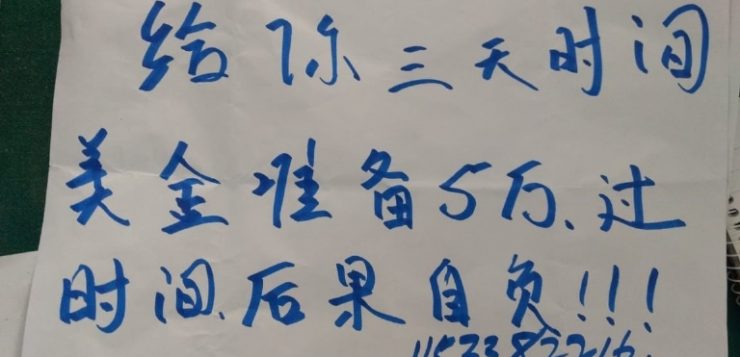 给你三天时间
美金准备5万、过
时间、后果自负!!!